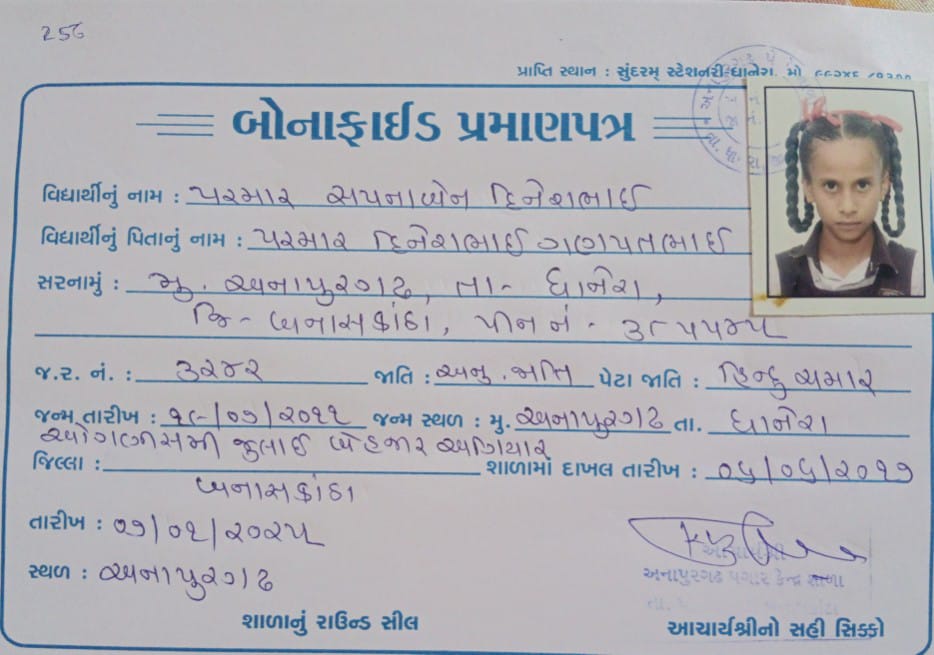 256
પ્રાપ્તિ સ્થાન : સુંદરમ્ સ્ટેશનરી ધાનેરા. મો.
બોનાફાઈડ પ્રમાણપત્ર
વિદ્યાર્થીનું નામ : પરમાર સપનાબેન દિનેશભાઈ
વિદ્યાર્થીનું પિતાનું નામ : પરમાર દિનેશભાઈ ગણપતભાઈ
સરનામું : મુ. અનાપુરગઢ, તા- ધાનેરા,
જિ- બનાસકાંઠા, પીન નં - ૩૮૫૫૪૫
જ.ર. નં. : ૩૨૪૨ જાતિ : અનુ. જાતિ પેટા જાતિ : હિન્દુ ચમાર
જન્મ તારીખ : ૧૯/૦૭/૨૦૧૧ જન્મ સ્થળ : મુ. અનાપુરગઢ તા. ધાનેરા
ઓગણીસમી જુલાઈ બેહજાર અગિયાર
જિલ્લા : શાળામાં દાખલ તારીખ : ૦૫/૦૫/૨૦૧૭
બનાસકાંઠા
તારીખ : ૦૭/૦૧/૨૦૨૫
સ્થળ : અનાપુરગઢ
આચાર્યશ્રી
અનાપુરગઢ પગાર કેન્દ્ર શાળા
શાળાનું રાઉન્ડ સીલ
આચાર્યશ્રીનો સહી સિક્કો